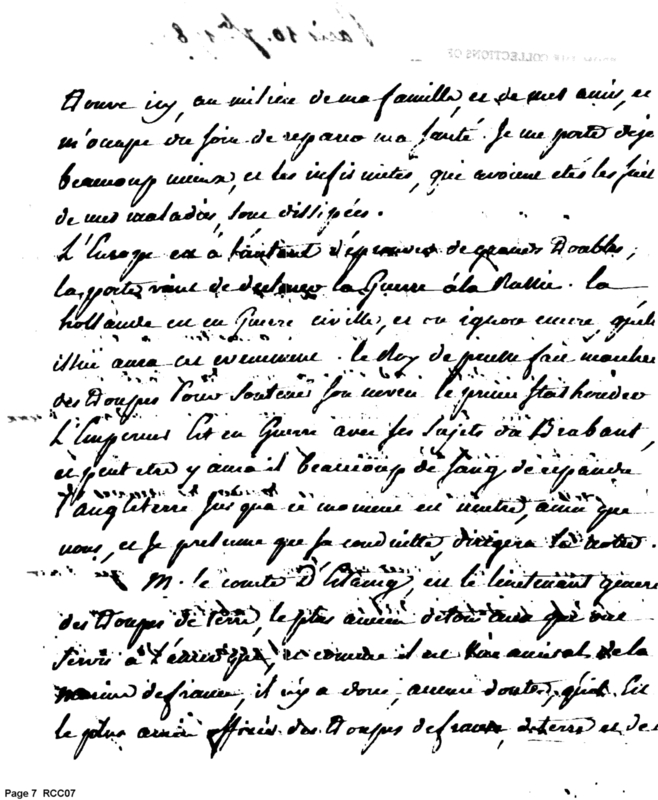 trouve icy, au milieu de ma famille, et de mes amis, et
m'occupe du soin de reparer ma santé. Je me porte deja
beaucoup mieux, et les infirmités, qui avoient etés les
de mes maladies, sont dissipées.
L'Europe est à d'epreuves de grands troubles,
la porte vient de declarer la Guerre à la Russie. la
hollande est en Guerre civille, et on ignore encore, quele
issüe aura cet evenement. le Roy de prusse fait marcher
des troupes pour soutenir son neveu le prince stathouder
L'Empereur Est en Guerre avec ses sujets du Brabant,
et peut etre y aura il beaucoup de sang de repandu
l'angleterre jusqua ce moment est neutre, ainsi que
nous, et je presume que sa conduitte, dirigera la notre.
M. le comte d'Estaing, est le lieutenant general
des troupes de terre, le plus ancien de tous ceux qui ont
servis a l'amerique, et comme il est Vice amiral de la
marine de france, il n'y a donc, aucune doutes, qu'il Est
le plus ancien officier des troupes de france, de terre et de
Page 7 RCC07